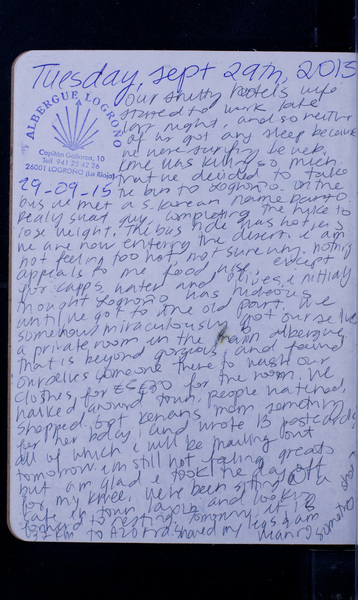 Tuesday, sept 29th, 2015
ALBERGUE LOGROÑO
Capitán Gallarza, 10
Tel. 941 25 42 26
26001 LOGROÑO (La Rioja)
29-09-15
our shitty hostels wifi
started to work late
last night, and so neither
of us got any sleep because
we were surfing le web.
knee was killing so much
that we decided to take
the bus to Logroño. On the
bus we met a S. Korean name
realy sweet guy, completing the hike to
lose weight. The bus ride was hot, as
we are now entering the desert. I am
not feeling too hot, not sure why. nothing
appeals to me food wise except
for capps, water and olives. initially
thought Logroño was hideous
until we got to the old part. We
somehow miraculously got our selves
a private room in the main albergue,
that is beyond gorgeous, and found
ourselves someone there to wash our
clothes, for for the room. We
walked around town, people watched,
shopped. Got kenans mom something
for her bday, and wrote 13 postcards,
all of which i will be mailing out
tomorrow. im still not feeling great
but am glad i took the day off
for my knee. we've been sitting at a
cafe in town and looking
forward to resting tomorrow it is
km to shaved my legs & am
wearing